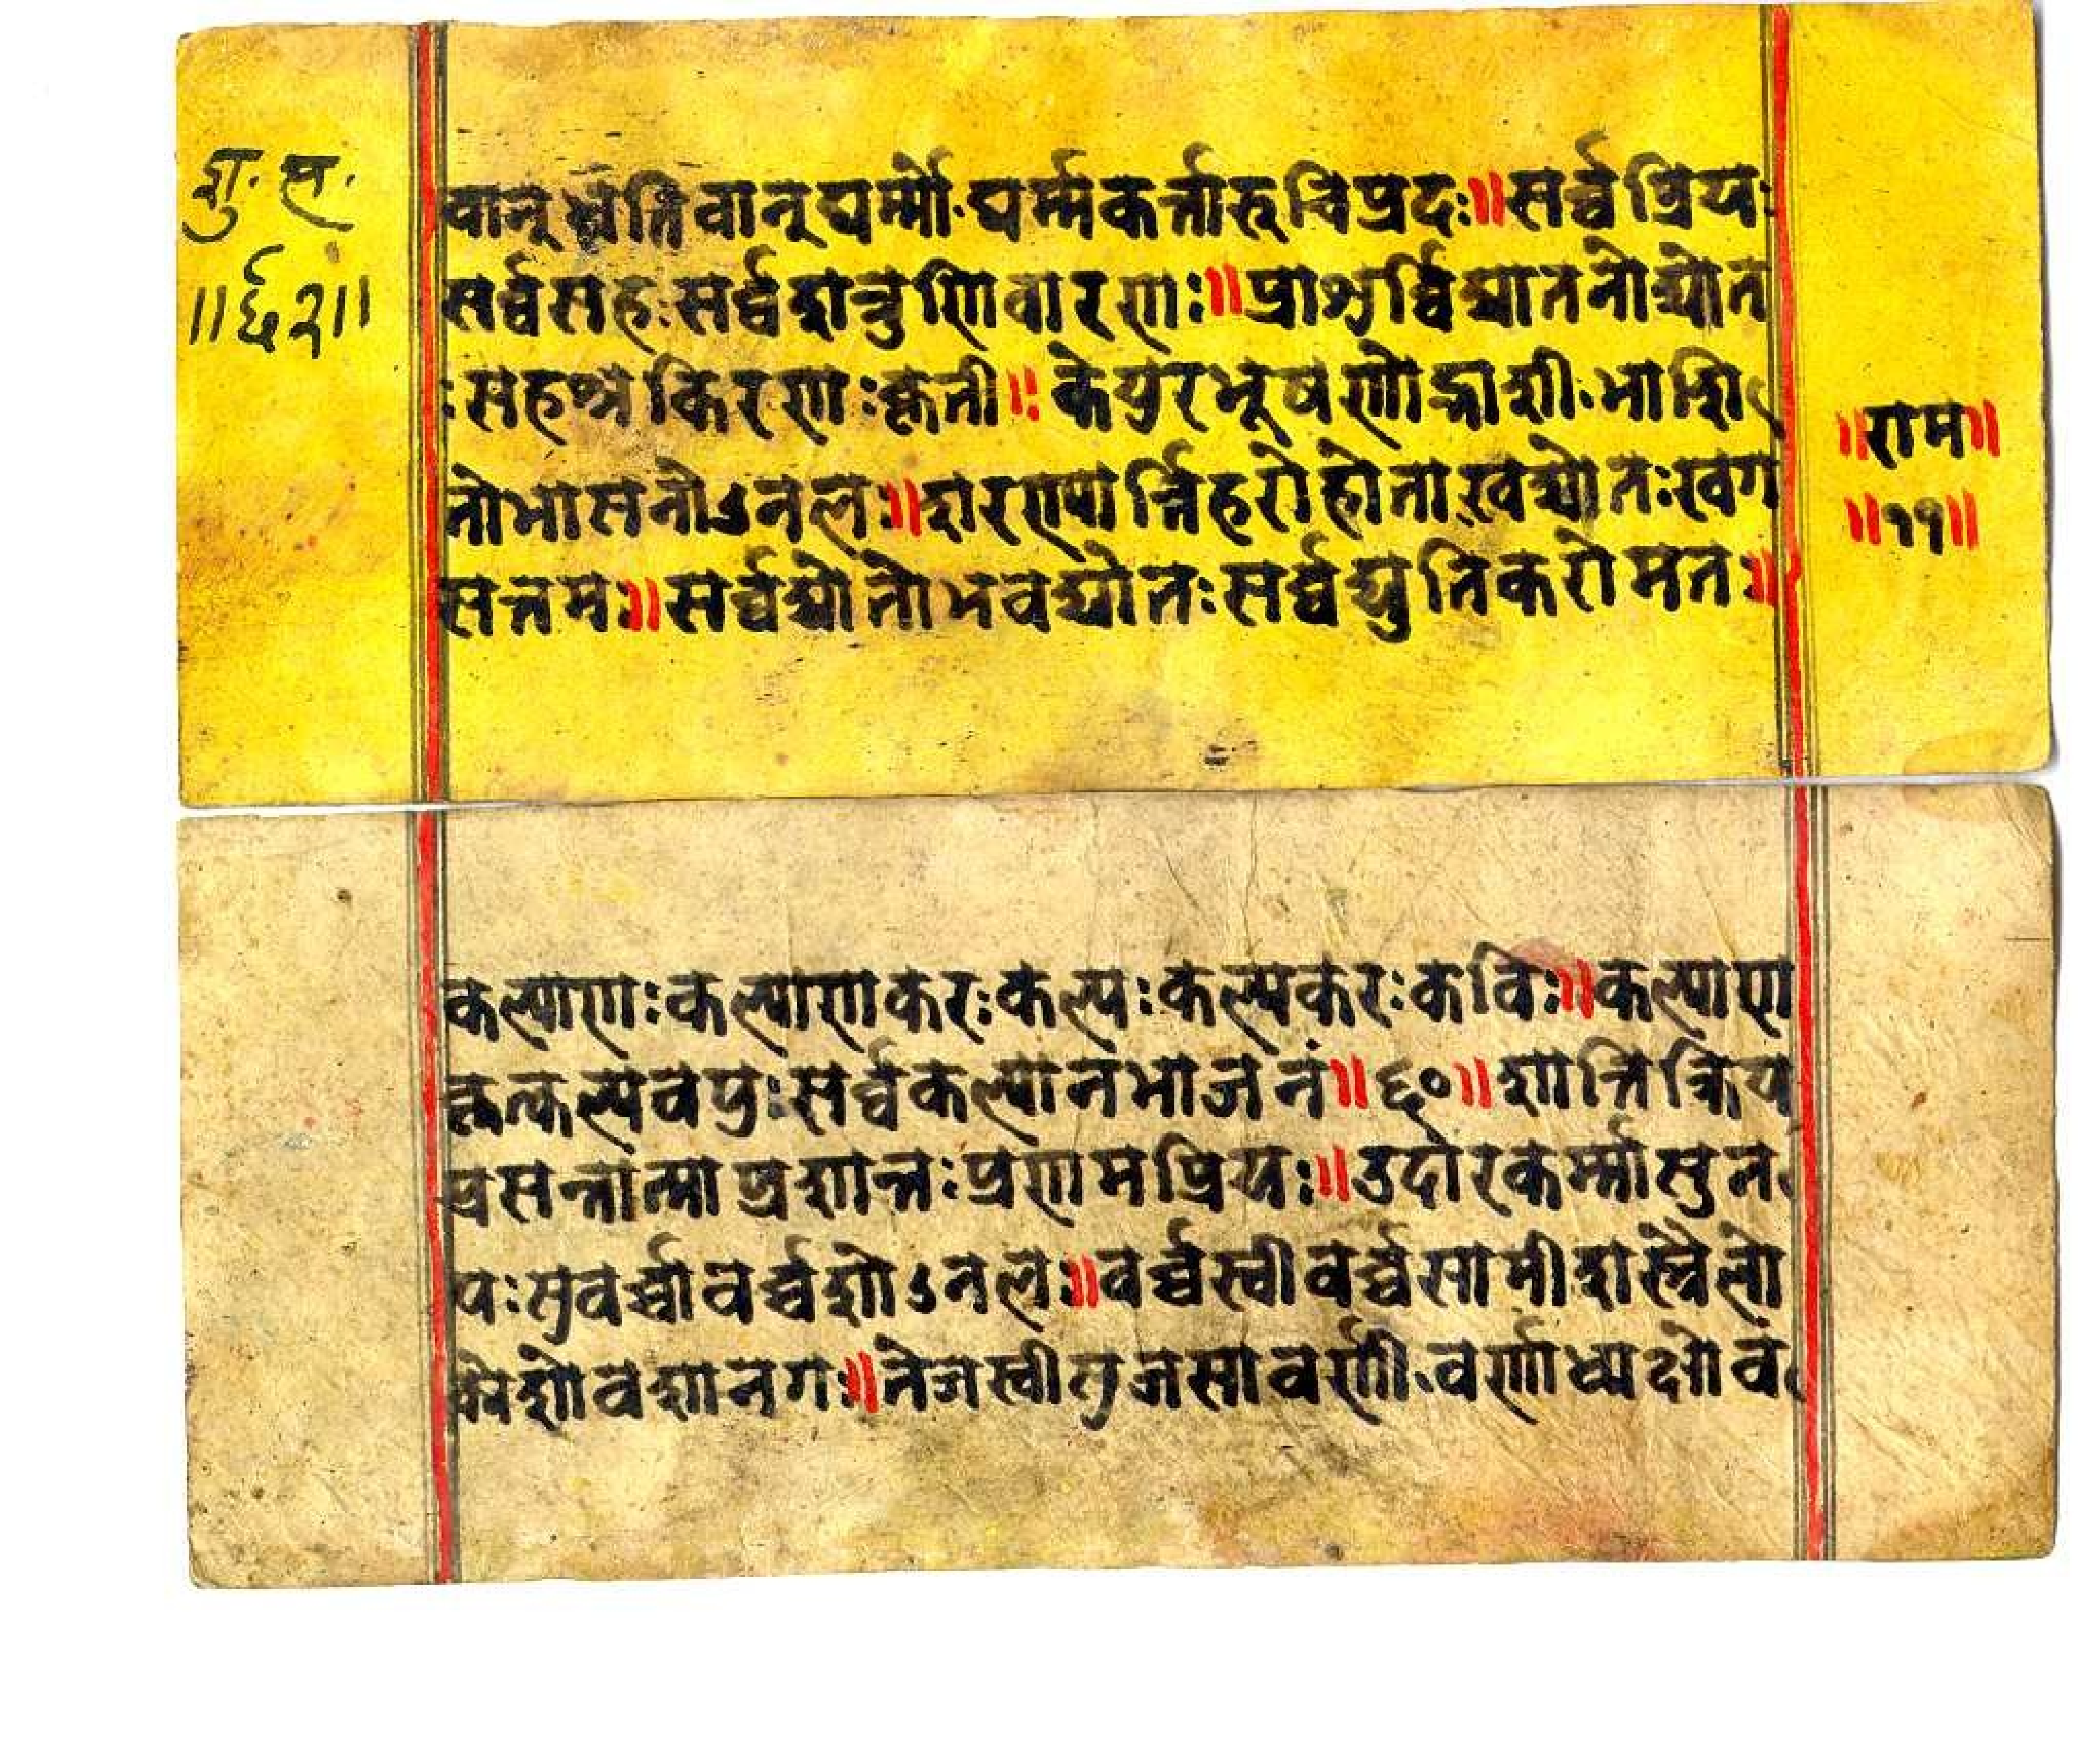 शु. स.
॥६२॥
वान् धृति वान् घर्म्मो घर्म्मकर्त्तारुचिप्रदः॥सर्व्वप्रियः
सर्व्वसहःसर्व्वशत्रुणिवारणः॥प्राशुर्व्विद्यातनोद्योत
ःसहश्रकिरणःकृती॥केयुरभूषणोद्भाशी भाशि
नोभासनोऽनलः॥शरणार्त्तिहरोहोताखद्योतःखग
सत्तमः॥सर्व्वद्योतोभवद्योतःसर्व्वद्युतिकरोमतः॥
॥राम॥
॥११॥
कल्याणःकल्याणकरःकल्पःकल्पकरःकविः॥कल्याण
कृत्कल्पवपुःसर्व्वकल्यानभाजनं॥६०॥शान्तिक्रिय
प्रसन्तात्माप्रशान्तःप्रणामप्रियः॥उदारकर्म्मासुन
यःसुवर्च्चावर्च्चशोऽनलः॥वर्च्चस्वीवर्च्चसामीशस्त्रैलो
क्येशोवशानगः॥तेजस्वीसुजसावर्णी वर्णाध्यक्षोव